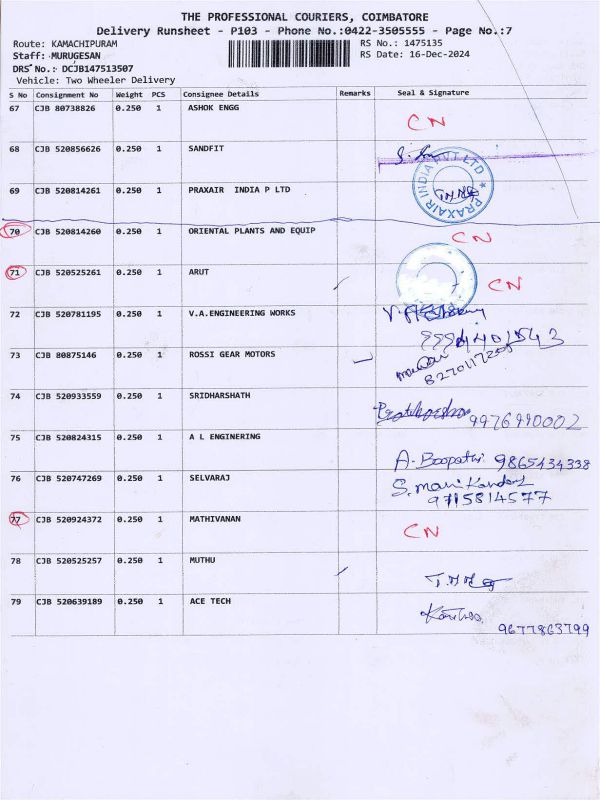 THE PROFESSIONAL COURIERS, COIMBATORE
Delivery Runsheet - P103 - Phone No.:0422-3505555 - Page No.:7
Route: KAMACHIPURAM RS No.: 1475135
Staff: MURUGESAN RS Date: 16-Dec-2024
DRS No.: DCJB147513507
Vehicle: Two Wheeler Delivery
S No Consignment No Weight PCS Consignee Details Remarks Seal & Signature
67 CJB 80738826 0.250 1 ASHOK ENGG CN
68 CJB 520856626 0.250 1 SANDFIT
69 CJB 520814261 0.250 1 PRAXAIR INDIA P LTD PRAXAIR INDIA PVT LTD
70 CJB 520814260 0.250 1 ORIENTAL PLANTS AND EQUIP CN
71 CJB 520525261 0.250 1 ARUT CN
72 CJB 520781195 0.250 1 V.A.ENGINEERING WORKS
73 CJB 80875146 0.250 1 ROSSI GEAR MOTORS
74 CJB 520933559 0.250 1 SRIDHARSHATH 9976990002
75 CJB 520824315 0.250 1 A L ENGINERING A. Boopathi 9865434338
76 CJB 520747269 0.250 1 SELVARAJ S. Manikandan
9715814577
77 CJB 520924372 0.250 1 MATHIVANAN CN
78 CJB 520525257 0.250 1 MUTHU
79 CJB 520639189 0.250 1 ACE TECH
9677863799